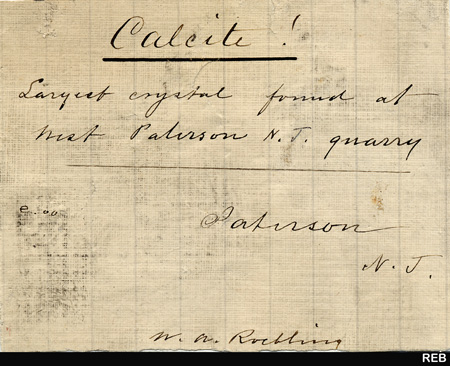 Calcite!
Largest crystal found at
West Paterson N. J. quarry
Paterson
N. J.
W. A. Roebling
REB